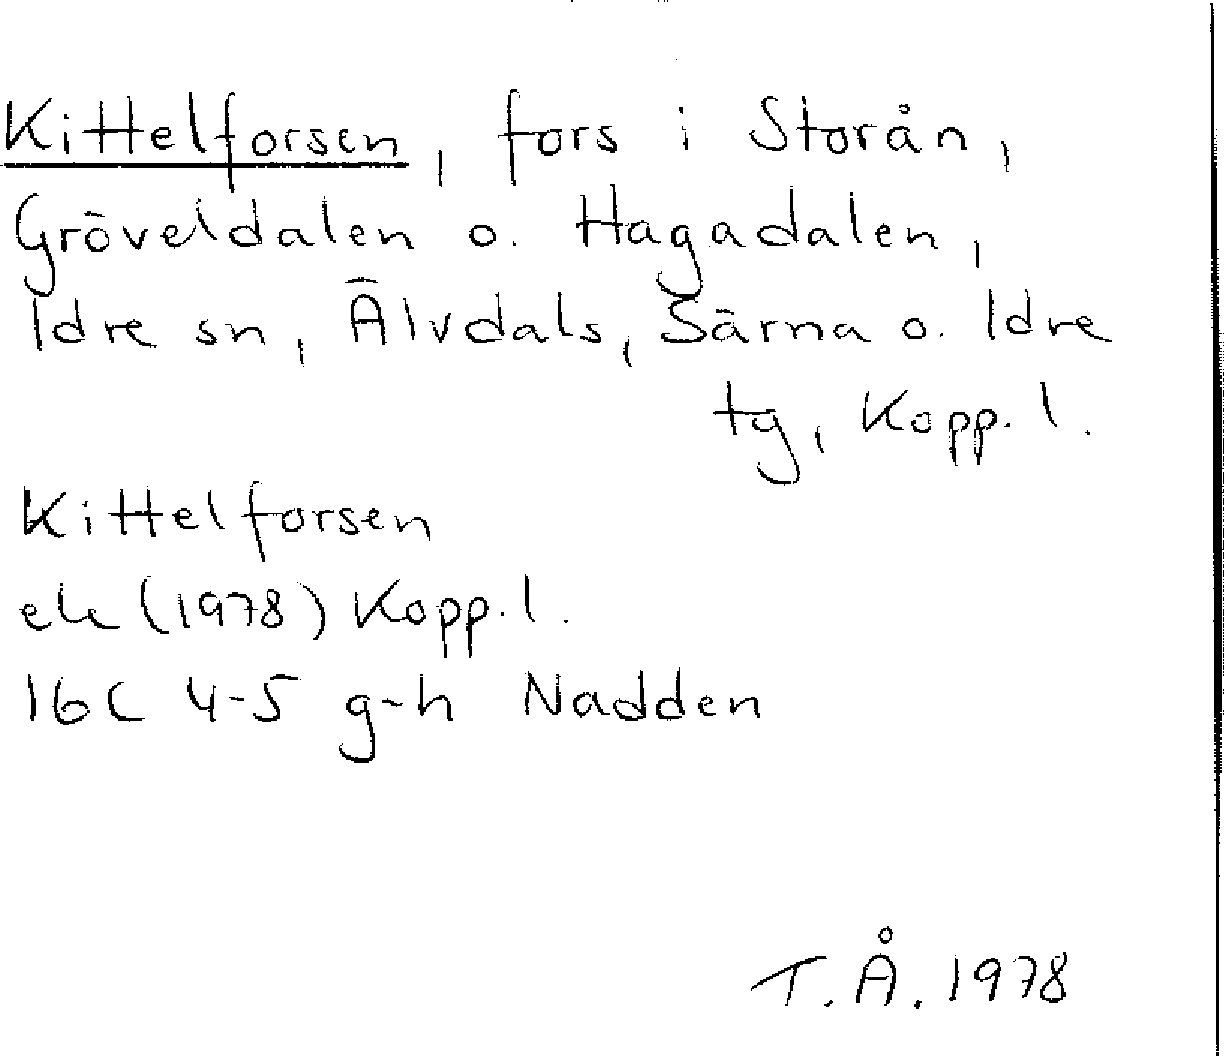 Kittelforsen, fors i Storån,
Gröveldalen o. Hagadalen,
Idre sn, Älvdals, Särna o. Idre
tg, Kopp. l.
Kittelforsen
ek (1978) Kopp. l.
16C 4-5 g-h Nadden
T. Å. 1978